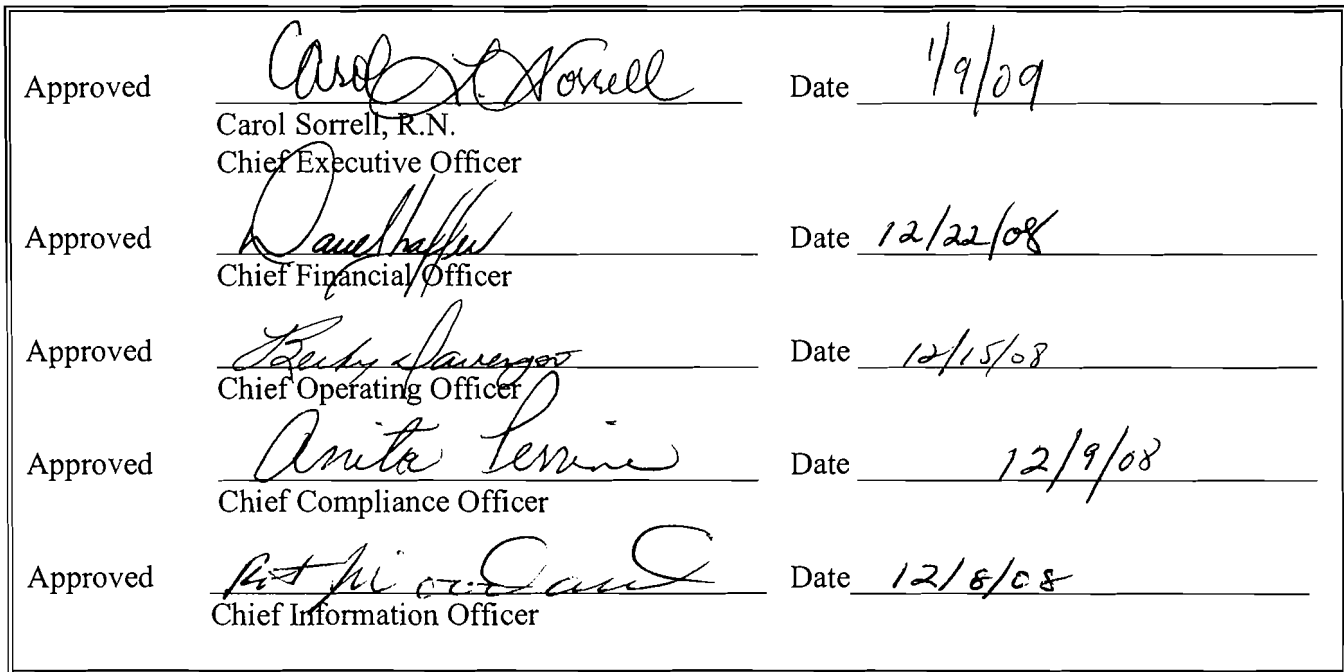 Approved Carol L. Sorrell Date 1/9/09
Carol Sorrell, R.N.
Chief Executive Officer
Approved Dave Shaffer Date 12/22/08
Chief Financial Officer
Approved Becky Date 12/15/08
Chief Operating Officer
Approved Anita Perrine Date 12/9/08
Chief Compliance Officer
Approved Date 12/8/08
Chief Information Officer